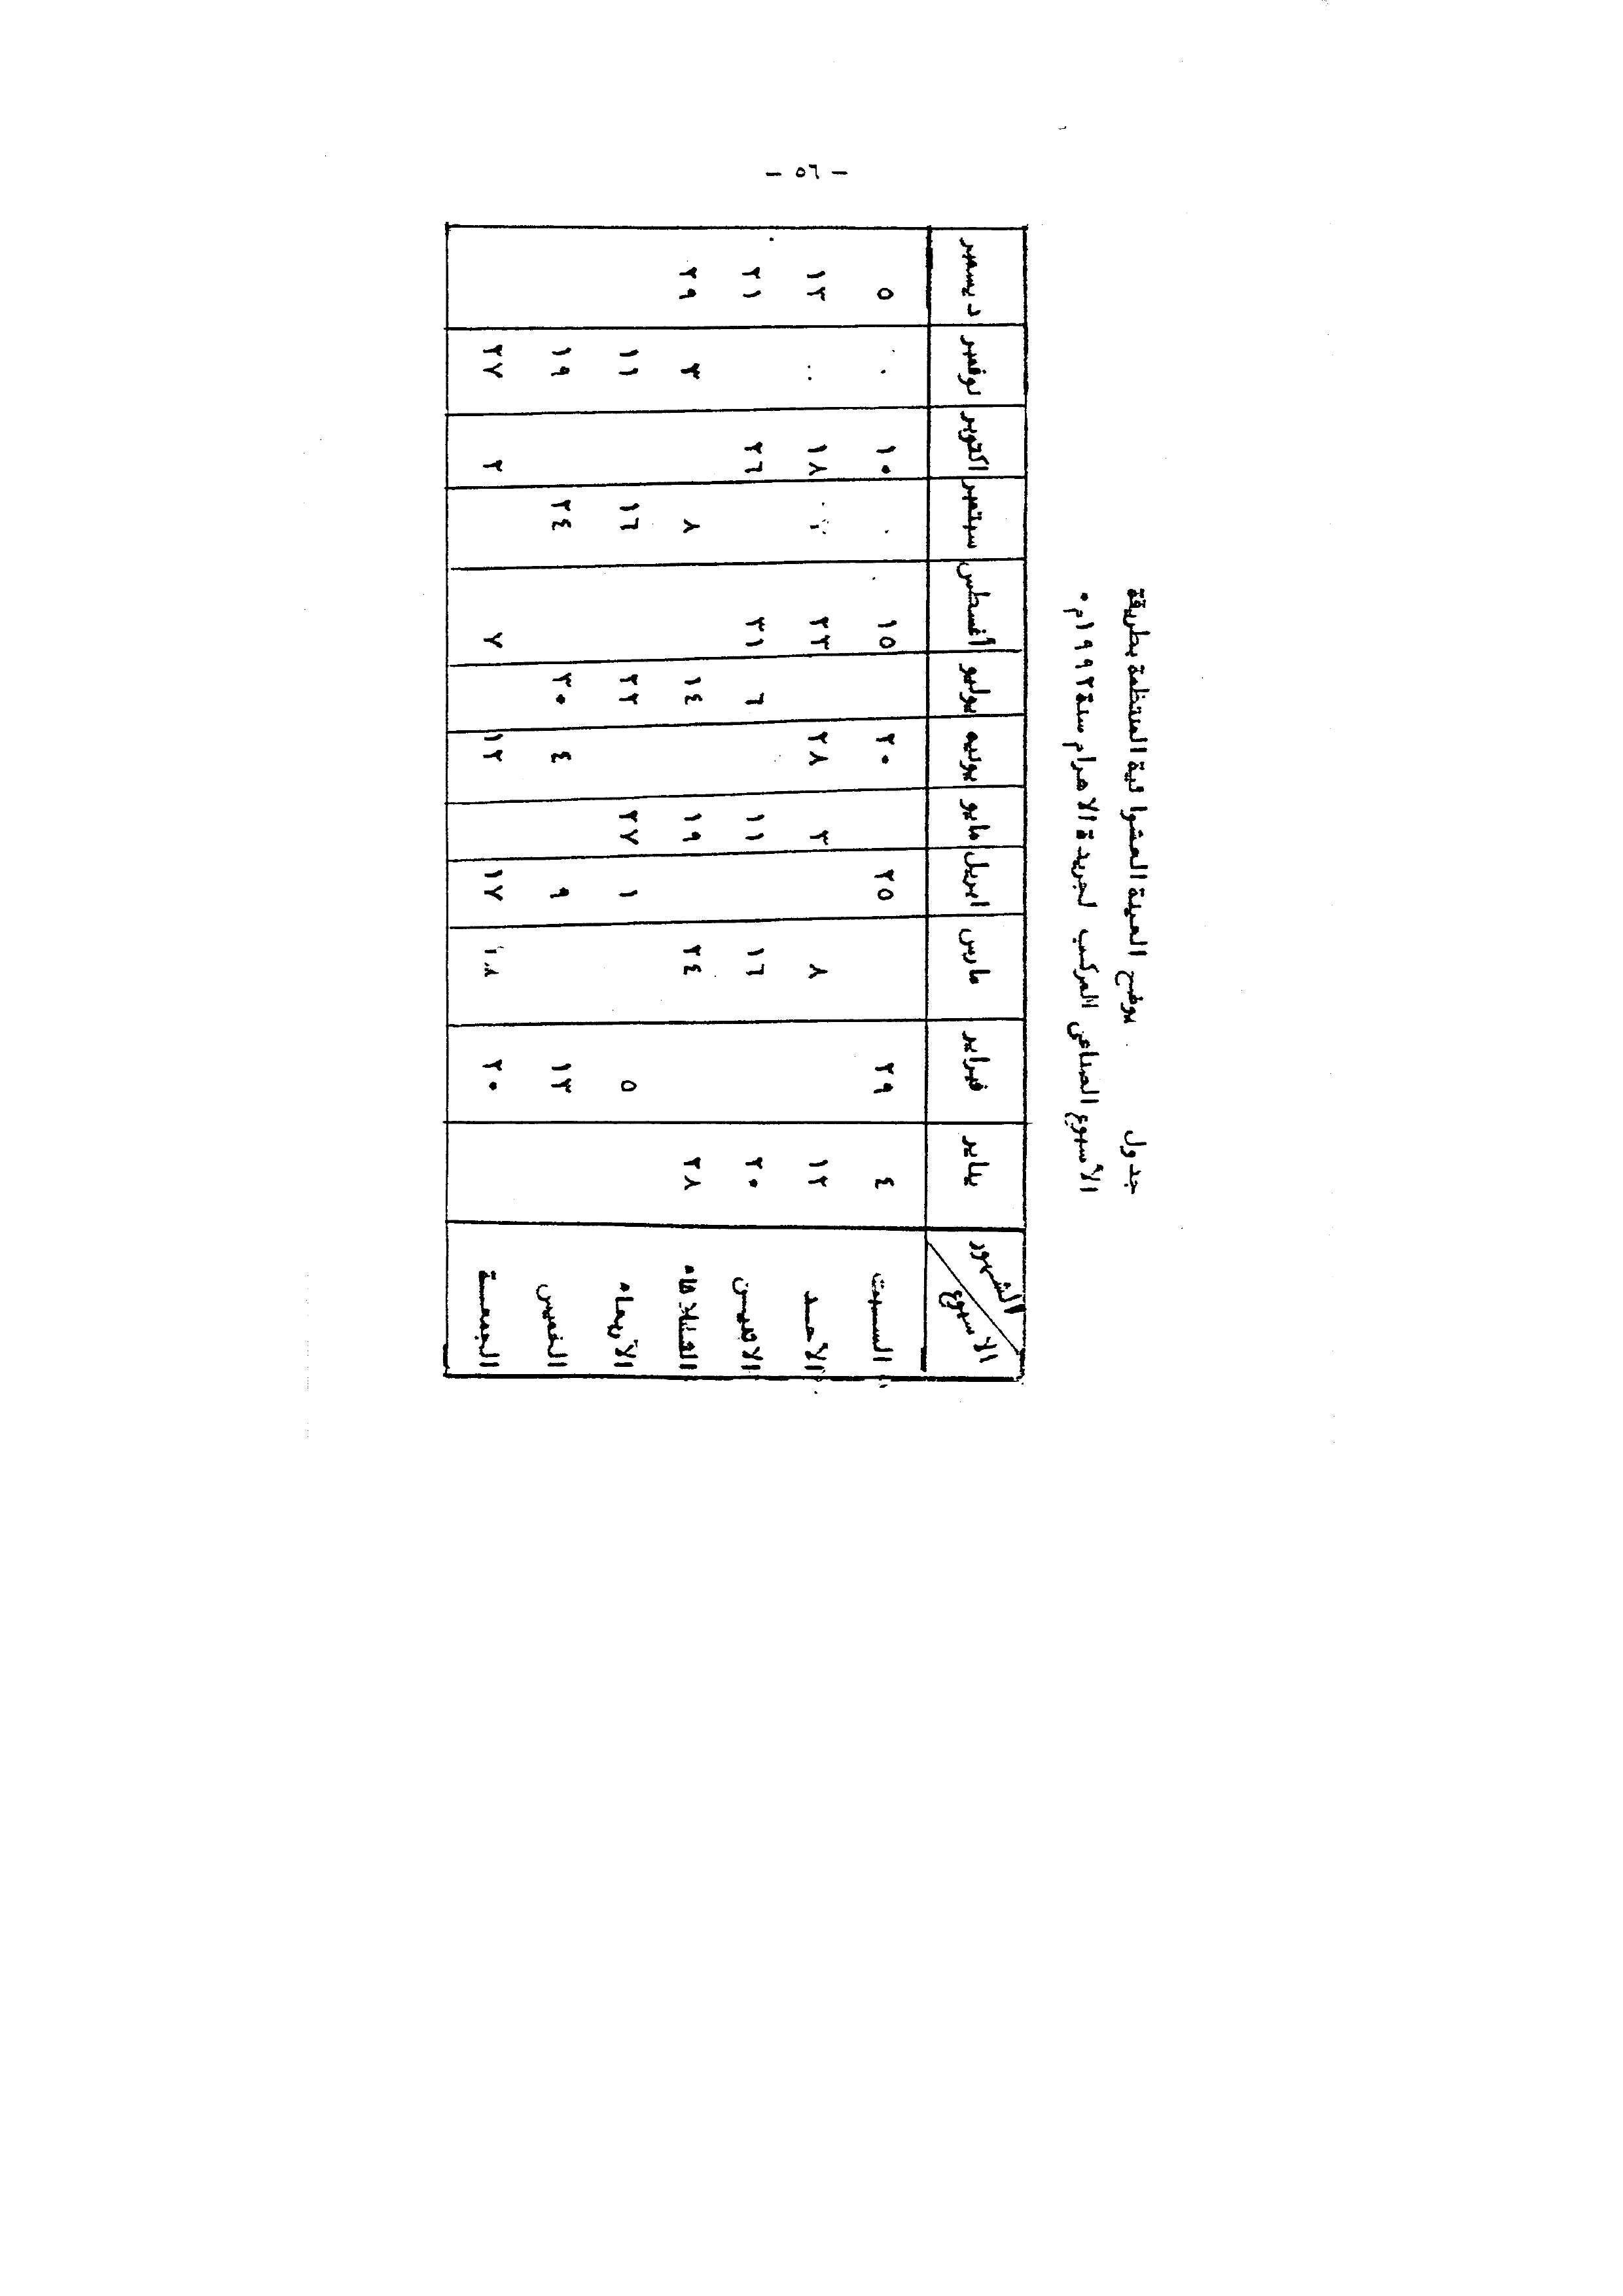 - ٥٦ -
جدول يوضح العينة العشوائية المنتظمة بطريقة
الأسبوع الصناعى المركب لجريدة الاهرام سنة ١٩٩٢م.
الشهور الاسبوع يناير فبراير مارس ابريل مايو يونيه يوليو أغسطس سبتمبر اكتوبر نوفمبر ديسمبر
السبت ٤ ٢٩ ٢٥ ٢٠ ١٥ ١٠ ٥
الأحد ١٢ ٨ ٣ ٢٨ ٢٣ ١٨ ١٣
الاثنين ٢٠ ١٦ ١١ ٦ ٣١ ٢٦ ٢١
الثلاثاء ٢٨ ٢٤ ١٩ ١٤ ٨ ٣ ٢٩
الأربعاء ٥ ١ ٢٧ ٢٢ ١٦ ١١
الخميس ١٣ ٩ ٤ ٣٠ ٢٤ ١٩
الجمعة ٢٠ ١٧ ١٢ ٧ ٢ ٢٧